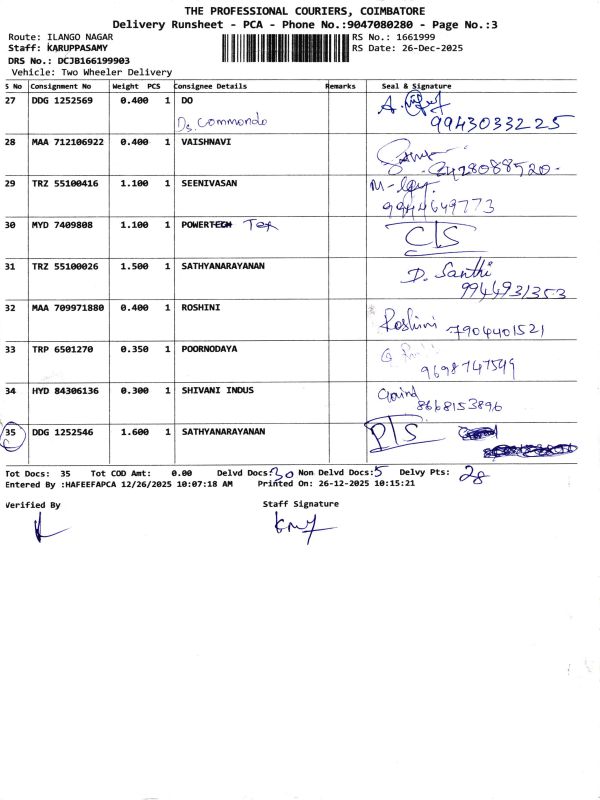 THE PROFESSIONAL COURIERS, COIMBATORE
Delivery Runsheet - PCA - Phone No.:9047080280 - Page No.:3
Route: ILANGO NAGAR RS No.: 1661999
Staff: KARUPPASAMY RS Date: 26-Dec-2025
DRS No.: DCJB166199903
Vehicle: Two Wheeler Delivery
S No Consignment No Weight PCS Consignee Details Remarks Seal & Signature
27 DDG 1252569 0.400 1 DO
Ds. Commando 9943033225
28 MAA 712106922 0.400 1 VAISHNAVI
8428088520
29 TRZ 55100416 1.100 1 SEENIVASAN
9944649773
30 MYD 7409808 1.100 1 POWERTECH Tex C/S
31 TRZ 55100026 1.500 1 SATHYANARAYANAN D. Santhi
9944931353
32 MAA 709971880 0.400 1 ROSHINI
Roshini 7904401521
33 TRP 6501270 0.350 1 POORNODAYA
9698747549
34 HYD 84306136 0.300 1 SHIVANI INDUS
8668153896
35 DDG 1252546 1.600 1 SATHYANARAYANAN P/S
Tot Docs: 35 Tot COD Amt: 0.00 Delvd Docs:30 Non Delvd Docs:5 Delvy Pts: 28
Entered By :HAFEEFAPCA 12/26/2025 10:07:18 AM Printed On: 26-12-2025 10:15:21
Verified By Staff Signature